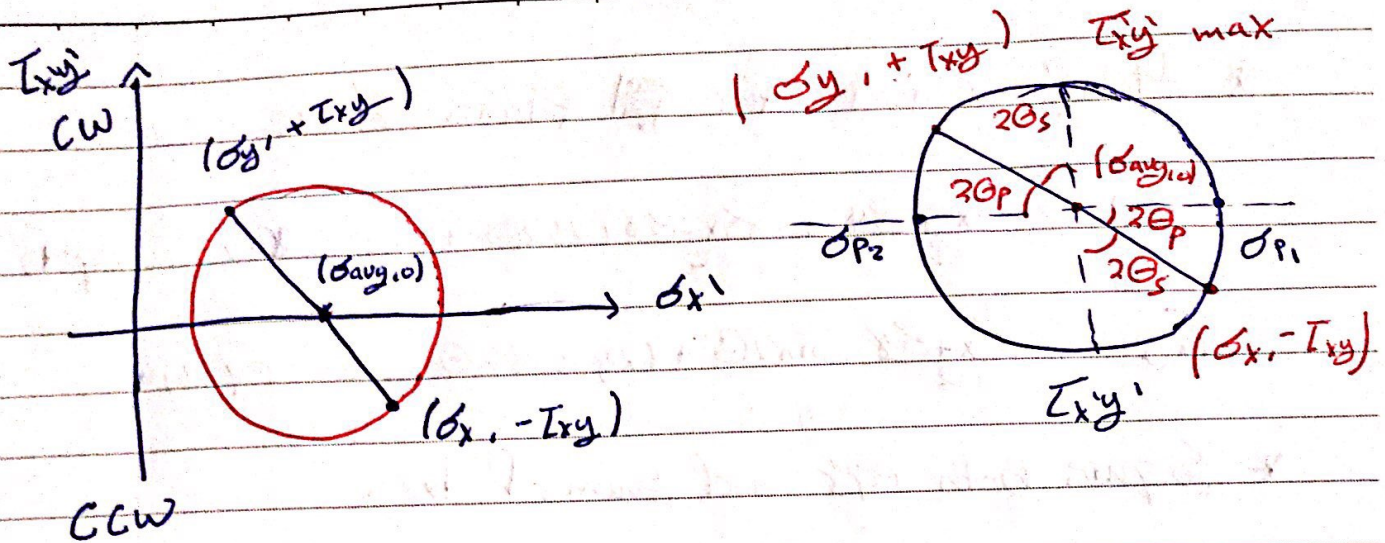 τx'y'
CW
(σy, +τxy)
(σavg,0)
σx'
(σx, -τxy)
CCW
(σy, +τxy) τx'y' max
2θs
(σavg,0)
2θp
2θp
σp2
σp1
2θs
(σx, -τxy)
τx'y'